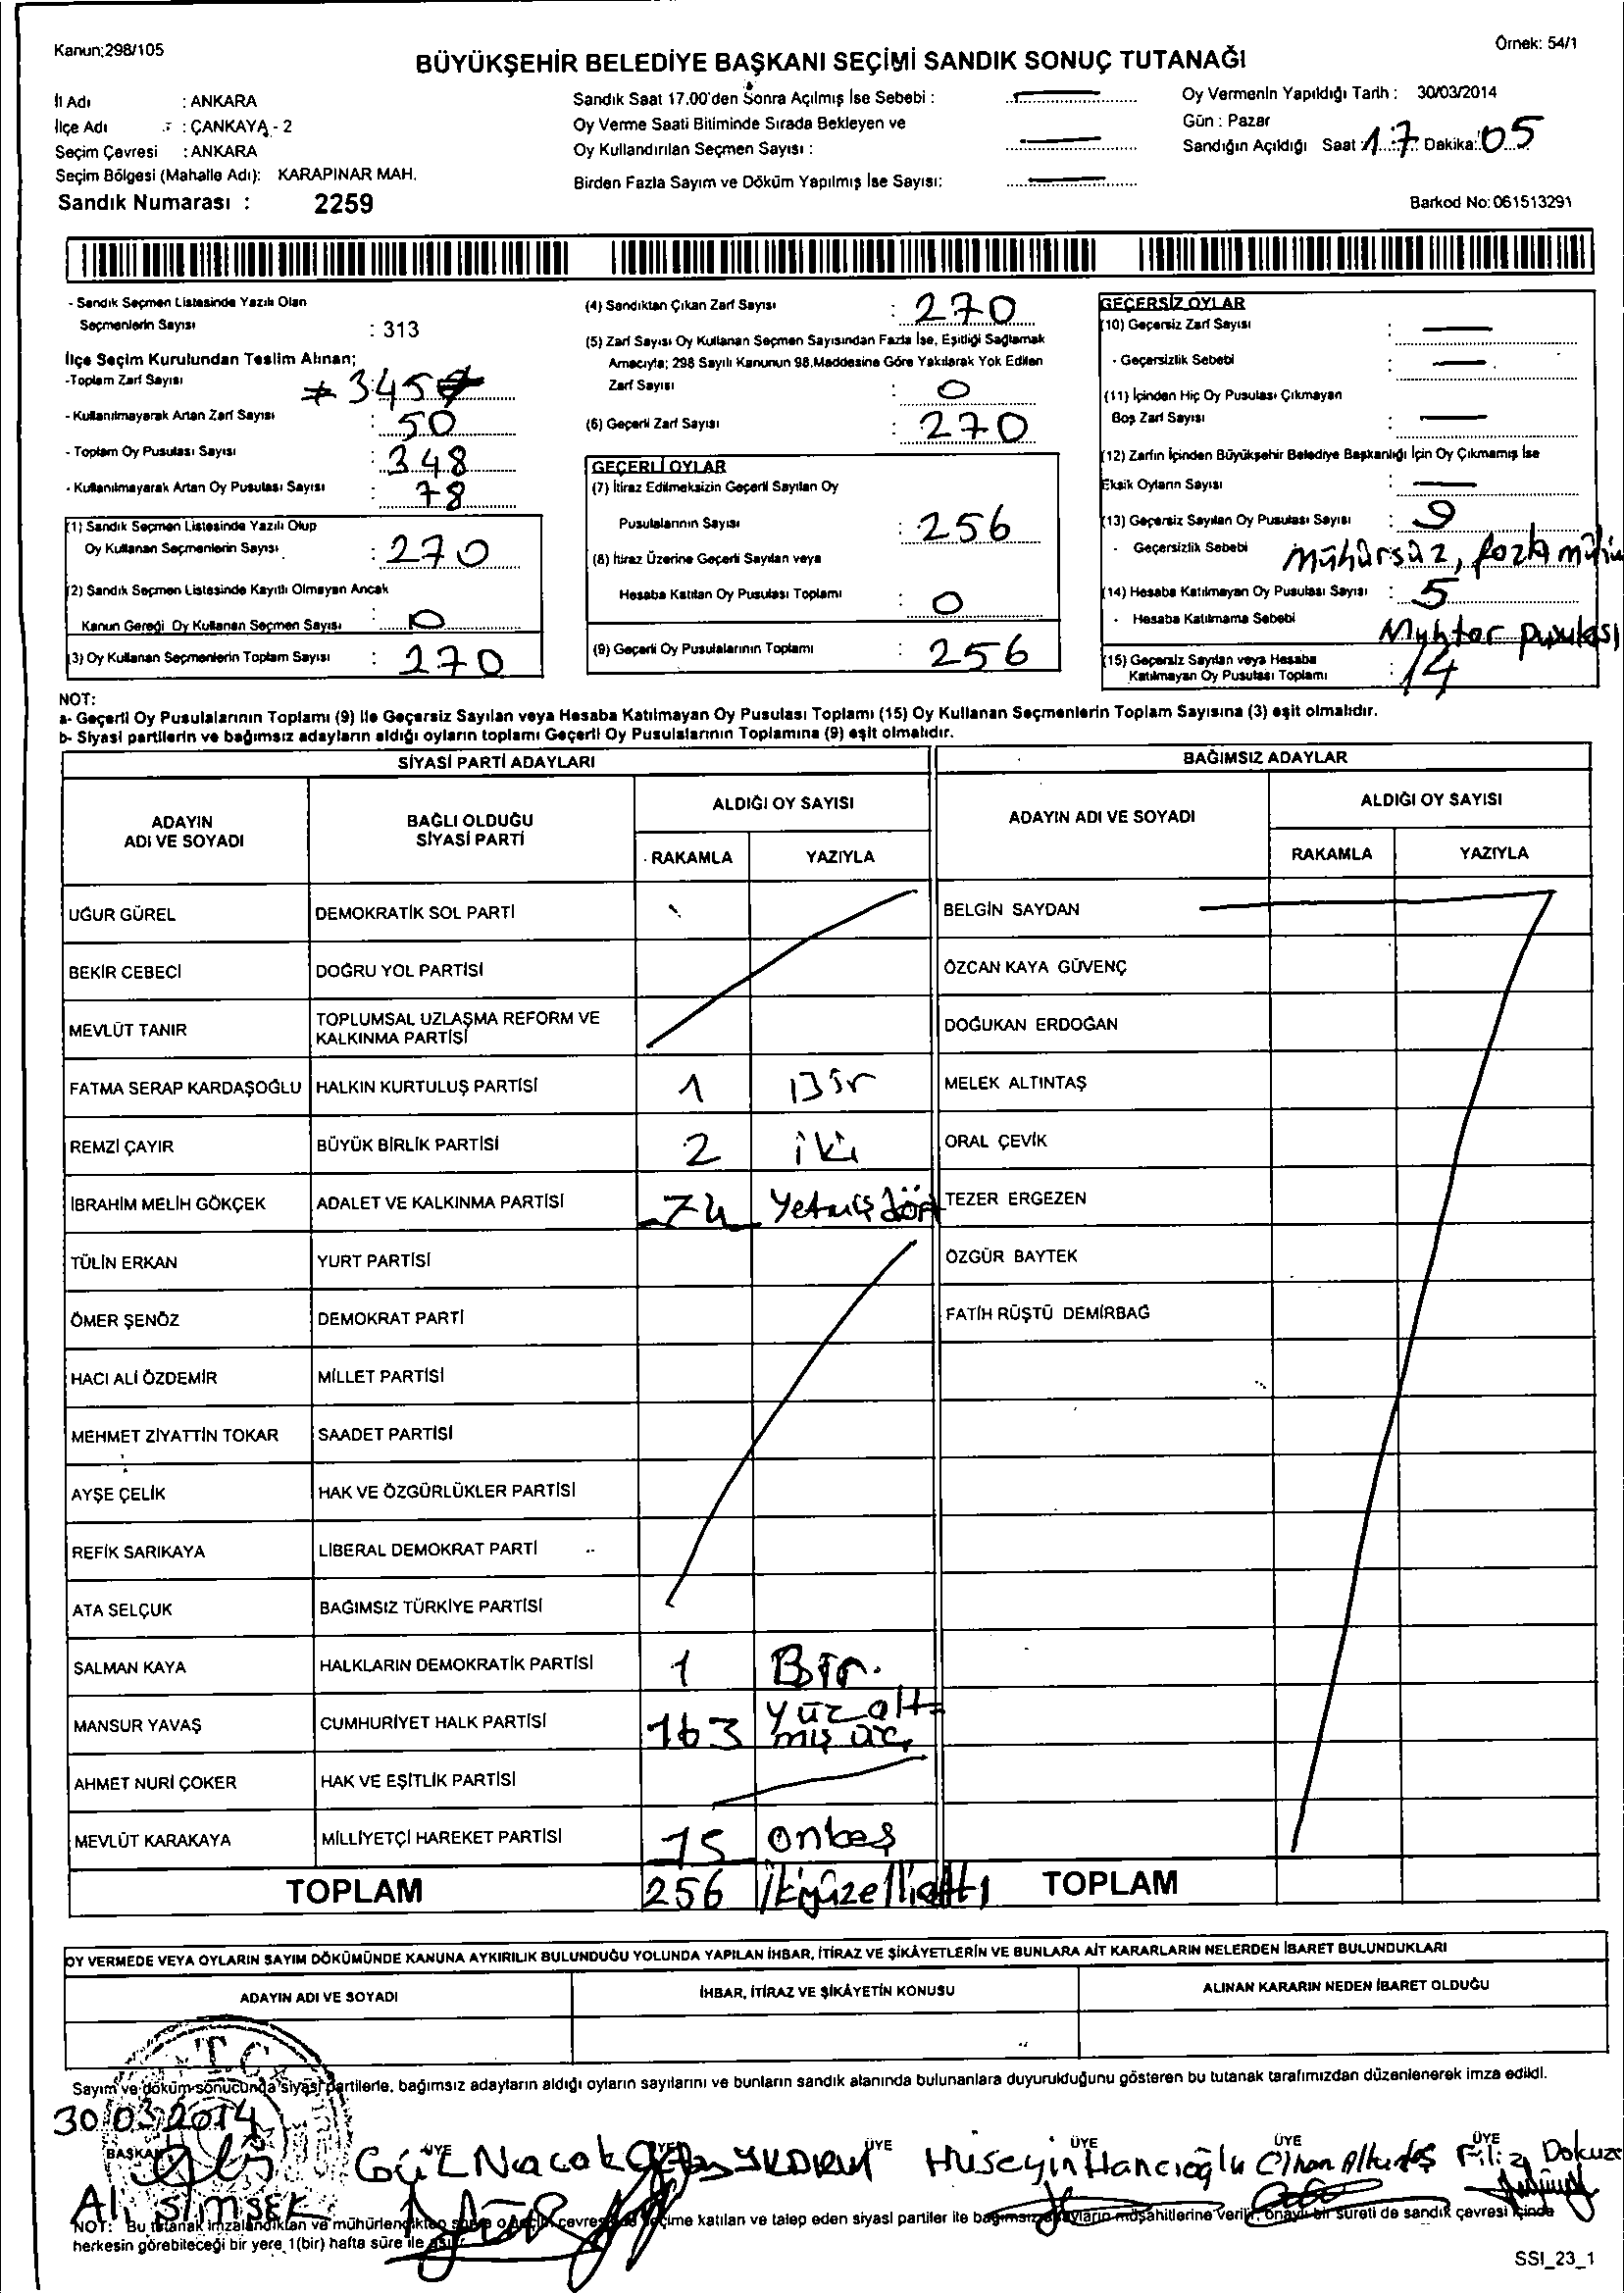 Kanun;298/105
Örnek: 54/1
BÜYÜKŞEHİR BELEDİYE BAŞKANI SEÇİMİ SANDIK SONUÇ TUTANAĞI
İl Adı : ANKARA
İlçe Adı : ÇANKAYA - 2
Seçim Çevresi : ANKARA
Seçim Bölgesi (Mahalle Adı): KARAPINAR MAH.
Sandık Numarası : 2259
Sandık Saat 17.00'den Sonra Açılmış İse Sebebi :
Oy Verme Saati Bitiminde Sırada Bekleyen ve
Oy Kullandırılan Seçmen Sayısı :
Birden Fazla Sayım ve Döküm Yapılmış İse Sayısı:
Oy Vermenin Yapıldığı Tarih : 30/03/2014
Gün : Pazar
Sandığın Açıldığı Saat : 17 Dakika: 05
Barkod No: 061513291
- Sandık Seçmen Listesinde Yazılı Olan
Seçmenlerin Sayısı : 313
İlçe Seçim Kurulundan Teslim Alınan;
-Toplam Zarf Sayısı : 345
- Kullanılmayarak Artan Zarf Sayısı : 50
- Toplam Oy Pusulası Sayısı : 348
- Kullanılmayarak Artan Oy Pusulası Sayısı : 78
(1) Sandık Seçmen Listesinde Yazılı Olup
Oy Kullanan Seçmenlerin Sayısı : 270
(2) Sandık Seçmen Listesinde Kayıtlı Olmayan Ancak
Kanun Gereği Oy Kullanan Seçmen Sayısı : 0
(3) Oy Kullanan Seçmenlerin Toplam Sayısı : 270
(4) Sandıktan Çıkan Zarf Sayısı : 270
(5) Zarf Sayısı Oy Kullanan Seçmen Sayısından Fazla İse, Eşitliği Sağlamak
Amacıyla; 298 Sayılı Kanunun 98.Maddesine Göre Yakılarak Yok Edilen
Zarf Sayısı : 0
(6) Geçerli Zarf Sayısı : 270
GEÇERLİ OYLAR
(7) İtiraz Edilmeksizin Geçerli Sayılan Oy
Pusulalarının Sayısı : 256
(8) İtiraz Üzerine Geçerli Sayılan veya
Hesaba Katılan Oy Pusulası Toplamı : 0
(9) Geçerli Oy Pusulalarının Toplamı : 256
GEÇERSİZ OYLAR
(10) Geçersiz Zarf Sayısı :
- Geçersizlik Sebebi :
(11) İçinden Hiç Oy Pusulası Çıkmayan
Boş Zarf Sayısı :
(12) Zarfın İçinden Büyükşehir Belediye Başkanlığı İçin Oy Çıkmamış İse
Eksik Oyların Sayısı :
(13) Geçersiz Sayılan Oy Pusulası Sayısı : 9
- Geçersizlik Sebebi mühürsüz, fazla
(14) Hesaba Katılmayan Oy Pusulası Sayısı : 5
- Hesaba Katılmama Sebebi Muhtar pusulası
(15) Geçersiz Sayılan veya Hesaba
Katılmayan Oy Pusulası Toplamı : 14
NOT:
a- Geçerli Oy Pusulalarının Toplamı (9) ile Geçersiz Sayılan veya Hesaba Katılmayan Oy Pusulası Toplamı (15) Oy Kullanan Seçmenlerin Toplam Sayısına (3) eşit olmalıdır.
b- Siyasi partilerin ve bağımsız adayların aldığı oyların toplamı Geçerli Oy Pusulalarının Toplamına (9) eşit olmalıdır.
SİYASİ PARTİ ADAYLARI
BAĞIMSIZ ADAYLAR
ADAYIN ADI VE SOYADI
BAĞLI OLDUĞU SİYASİ PARTİ
ALDIĞI OY SAYISI
RAKAMLA YAZIYLA
ADAYIN ADI VE SOYADI
ALDIĞI OY SAYISI
RAKAMLA YAZIYLA
UĞUR GÜREL DEMOKRATİK SOL PARTİ BELGİN SAYDAN
BEKİR CEBECİ DOĞRU YOL PARTİSİ ÖZCAN KAYA GÜVENÇ
MEVLÜT TANIR TOPLUMSAL UZLAŞMA REFORM VE KALKINMA PARTİSİ DOĞUKAN ERDOĞAN
FATMA SERAP KARDAŞOĞLU HALKIN KURTULUŞ PARTİSİ 1 Bir MELEK ALTINTAŞ
REMZİ ÇAYIR BÜYÜK BİRLİK PARTİSİ 2 iki ORAL ÇEVİK
İBRAHİM MELİH GÖKÇEK ADALET VE KALKINMA PARTİSİ 74 Yetmişdört TEZER ERGEZEN
TÜLİN ERKAN YURT PARTİSİ ÖZGÜR BAYTEK
ÖMER ŞENÖZ DEMOKRAT PARTİ FATİH RÜŞTÜ DEMİRBAĞ
HACI ALİ ÖZDEMİR MİLLET PARTİSİ
MEHMET ZİYATTİN TOKAR SAADET PARTİSİ
AYŞE ÇELİK HAK VE ÖZGÜRLÜKLER PARTİSİ
REFİK SARIKAYA LİBERAL DEMOKRAT PARTİ
ATA SELÇUK BAĞIMSIZ TÜRKİYE PARTİSİ
SALMAN KAYA HALKLARIN DEMOKRATİK PARTİSİ 1 Bir.
MANSUR YAVAŞ CUMHURİYET HALK PARTİSİ 163 yüz altmış üç
AHMET NURİ ÇOKER HAK VE EŞİTLİK PARTİSİ
MEVLÜT KARAKAYA MİLLİYETÇİ HAREKET PARTİSİ 15 onbeş
TOPLAM 256 ikiyüzellialtı TOPLAM
OY VERMEDE VEYA OYLARIN SAYIM DÖKÜMÜNDE KANUNA AYKIRILIK BULUNDUĞU YOLUNDA YAPILAN İHBAR, İTİRAZ VE ŞİKÂYETLERİN VE BUNLARA AİT KARARLARIN NELERDEN İBARET BULUNDUKLARI
ADAYIN ADI VE SOYADI İHBAR, İTİRAZ VE ŞİKÂYETİN KONUSU ALINAN KARARIN NEDEN İBARET OLDUĞU
T.C.
Sayım ve döküm sonucunda siyasi partilerle, bağımsız adayların aldığı oyların sayılarını ve bunların sandık alanında bulunanlara duyurulduğunu gösteren bu tutanak tarafımızdan düzenlenerek imza edildi.
30.03.2014
BAŞKAN ÜYE ÜYE ÜYE ÜYE ÜYE
Ali ŞİMŞEK Gül Nacak YILDIRIM Hüseyin Hancıoğlu Cihan Filiz Dokuz
NOT: Bu tutanak imzalandıktan ve mühürlendikten sonra o seçim çevresinde seçime katılan ve talep eden siyasi partiler ile bağımsız adayların müşahitlerine verilir, onaylı bir sureti de sandık çevresi içinde
herkesin görebileceği bir yere 1(bir) hafta süre ile asılır.
SSI_23_1